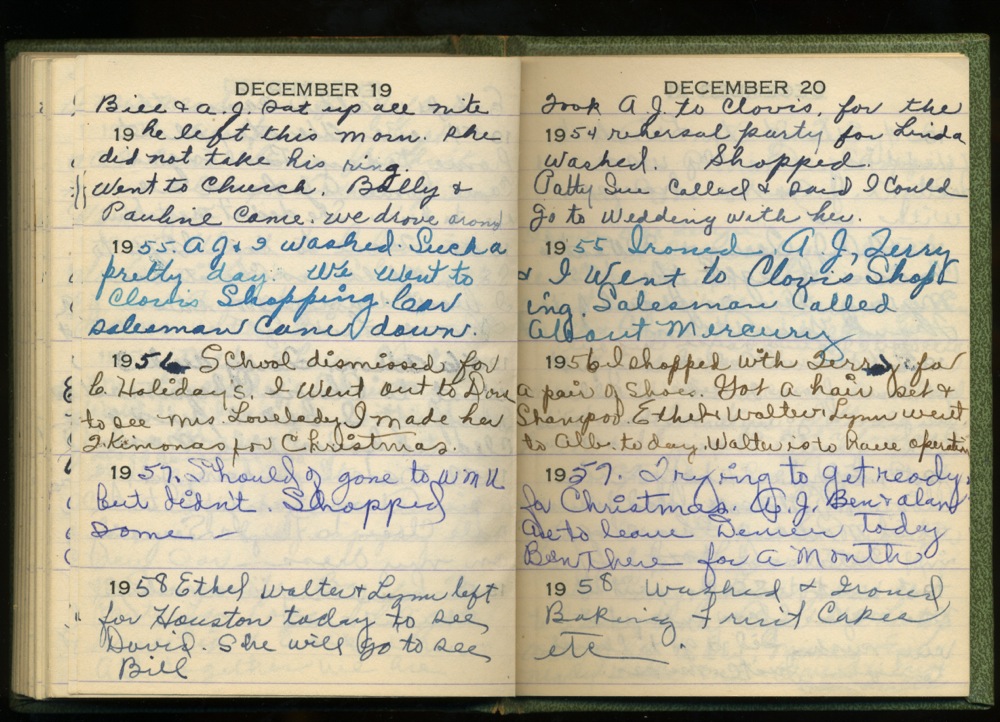 DECEMBER 19
Bill & A.J. sat up all nite
19 he left this morn. She
did not take his ring.
Went to Church. Billy &
Pauline came. we drove around
1955. A J & I washed. Such a
pretty day. We went to
Clovis Shopping. Car
salesman came down.
1956 School dismissed for
C. Holiday's. I went out to Dora
to see Mrs. Lovelady. I made her
2 Kimonas for Christmas.
1957. Should of gone to W M U
but didn't. Shopped
some —
1958 Ethel Walter & Lynn left
for Houston today to see
David. She will go to see
Bill
DECEMBER 20
Took A J. to Clovis, for the
1954 rehersal party for Linda
Washed. Shopped.
Patty Sue called & said I could
go to Wedding with her.
1955 Ironed. A J, Terry
& I went to Clovis Shopp
ing. Salesman called
About Mercury
1956 I shopped with Terry for
a pair of Shoes. Got a hair set &
Shampoo. Ethel & Walter & Lynn went
to Alb. today. Walter is to have operation
1957. Trying to get ready
for Christmas. A.J. Ben & Alan
are to leave Denver today
Been there for a Month
1958 Washed & Ironed
Baking Fruit Cakes
etc — .